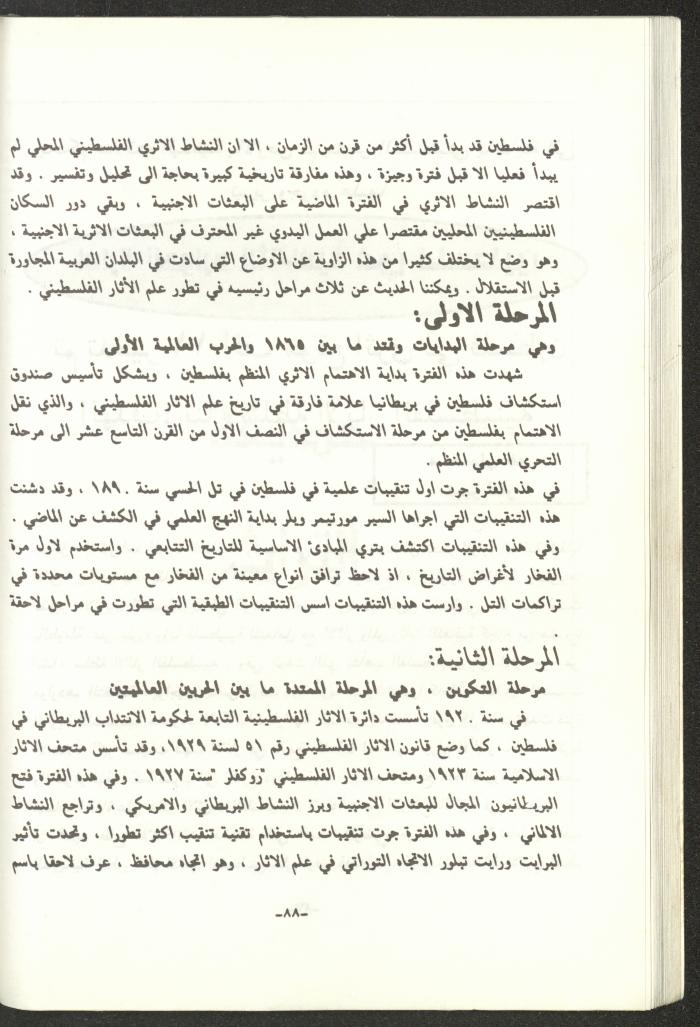 في فلسطين قد بدأ قبل أكثر من قرن من الزمان ، الا ان النشاط الاثري الفلسطيني المحلي لم
يبدأ فعليا الا قبل فترة وجيزة ، وهذه مفارقة تاريخية كبيرة بحاجة الى تحليل وتفسير . وقد
اقتصر النشاط الاثري في الفترة الماضية على البعثات الاجنبية ، وبقي دور السكان
الفلسطينيين المحليين مقتصرا علي العمل اليدوي غير المحترف في البعثات الاثرية الاجنبية ،
وهو وضع لا يختلف كثيرا من هذه الزاوية عن الاوضاع التي سادت في البلدان العربية المجاورة
قبل الاستقلال . ويمكننا الحديث عن ثلاث مراحل رئيسيه في تطور علم الأثار الفلسطيني .
المرحلة الاولى:
وهي مرحلة البدايات وتمتد ما بين ١٨٦٥ والحرب العالمية الأولى
شهدت هذه الفترة بداية الاهتمام الاثري المنظم بفلسطين ، ويشكل تأسيس صندوق
استكشاف فلسطين في بريطانيا علامة فارقة في تاريخ علم الاثار الفلسطيني ، والذي نقل
الاهتمام بفلسطين من مرحلة الاستكشاف في النصف الاول من القرن التاسع عشر الى مرحلة
التحري العلمي المنظم .
في هذه الفترة جرت اول تنقيبات علمية في فلسطين في تل الحسي سنة ١٨٩٠ ، وقد دشنت
هذه التنقيبات التي اجراها السير مورتيمر ويلر بداية النهج العلمي في الكشف عن الماضي .
وفي هذه التنقيبات اكتشف بتري المبادئ الاساسية للتاريخ التتابعي . واستخدم لاول مرة
الفخار لأغراض التاريخ ، اذ لاحظ ترافق انواع معينة من الفخار مع مستويات محددة في
تراكمات التل . وارست هذه التنقيبات اسس التنقيبات الطبقية التي تطورت في مراحل لاحقة
.
المرحلة الثانية:
مرحلة التكوين ، وهي المرحلة الممتدة ما بين الحربين العالميتين
في سنة ١٩٢٠ تأسست دائرة الاثار الفلسطينية التابعة لحكومة الانتداب البريطاني في
فلسطين ، كما وضع قانون الاثار الفلسطيني رقم ٥١ لسنة ١٩٢٩، وقد تأسس متحف الاثار
الاسلامية سنة ١٩٢٣ ومتحف الاثار الفلسطيني "روكفلر "سنة ١٩٢٧ . وفي هذه الفترة فتح
البريطانيون المجال للبعثات الاجنبية وبرز النشاط البريطاني والامريكي ، وتراجع النشاط
الالماني ، وفي هذه الفترة جرت تنقيبات باستخدام تقنية تنقيب اكثر تطورا ، وتحدت تأثير
البرايت ورايت تبلور الاتجاه التوراتي في علم الاثار ، وهو اتجاه محافظ ، عرف لاحقا باسم
-٨٨-